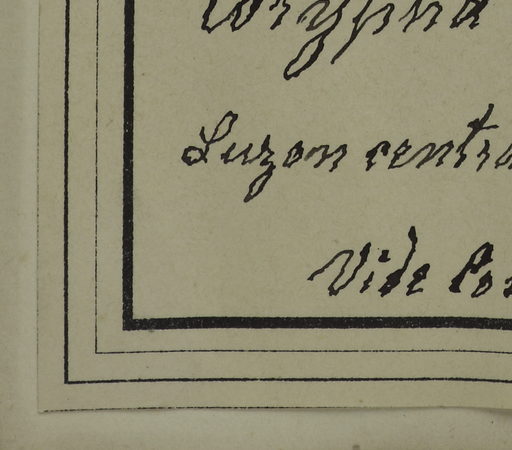 Corypha
Luzon centra
Vide Cor